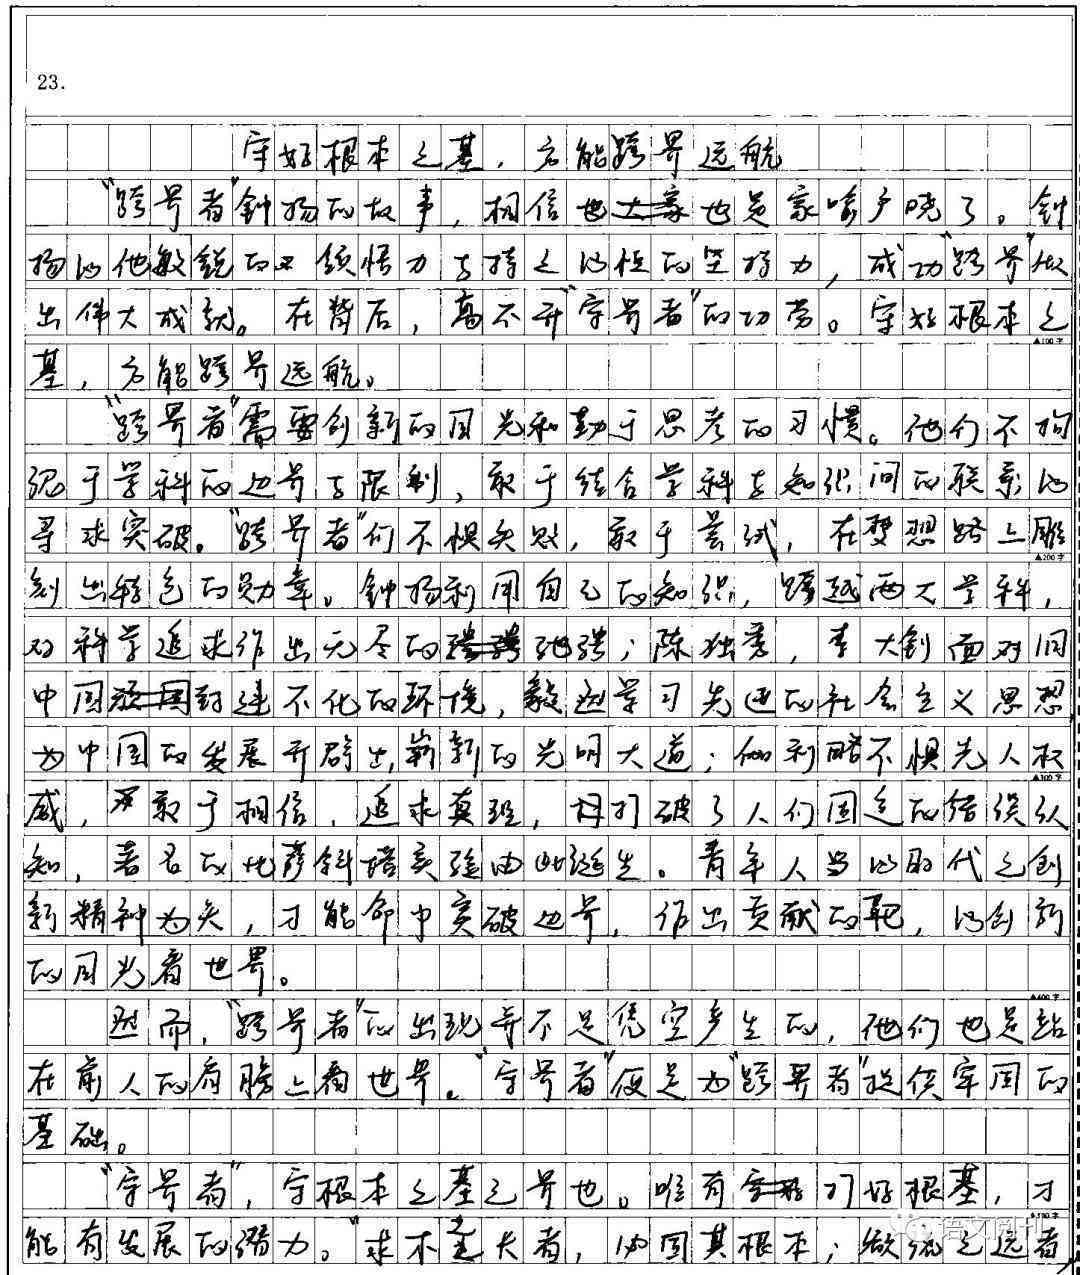 23.
守好根本之基，方能跨界远航
“跨界者”钟扬的故事，相信也大家也是家喻户晓了。钟
扬以他敏锐的领悟力与持之以恒的坚持力，成功“跨界”做
出伟大成就。在背后，离不开“守界者”的功劳。守好根本之
▲100字
基，方能跨界远航。
“跨界者”需要创新的目光和勤于思考的习惯。他们不拘
泥于学科的边界与限制，敢于结合学科与知识间的联系以
寻求突破。“跨界者”们不惧失败，敢于尝试，在梦想路上雕
▲200字
刻出特色的勋章。钟扬利用自己的知识，跨越两大学科，
对科学追求作出无尽的弛骋；陈独秀，李大钊面对旧
中国封建不化的环境，毅然学习先进的社会主义思想，
为中国的发展开辟出崭新的光明大道；伽利略不惧先人权
▲300字
威，敢于相信，追求真理，打破了人们固定的错误认
知，著名的比萨斜塔实验由此诞生。青年人当以时代之创
新精神为矢，才能命中突破边界，作出贡献的靶，以创新
的目光看世界。
▲400字
然而，“跨界者”的出现并不是凭空产生的，他们也是站
在前人的肩膀上看世界。“守界者”便是为“跨界者”提供牢固的
基础。
“守界者”，守根本之基之界也。唯有打好根基，才
▲500字
能有发展的潜力。“求木之长者，必固其根本；欲流之远者
语文阅刊